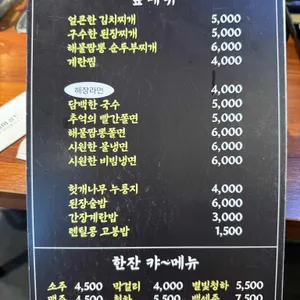 얼큰한 김치찌개 5,000
구수한 된장찌개 5,000
해물짬뽕 순두부찌개 6,000
계란찜 4,000
해장라면 4,000
담백한 국수 5,000
추억의 빨간쫄면 5,000
해물짬뽕쫄면 6,000
시원한 물냉면 6,000
시원한 비빔냉면 6,000
헛개나무 누룽지 4,000
된장술밥 6,000
간장계란밥 3,000
렌틸콩 고봉밥 1,500
한잔 캬~메뉴
소주 4,500 막걸리 4,000 별빛청하 5,500
맥주 4,500 청하 5,500 백세주 7,500